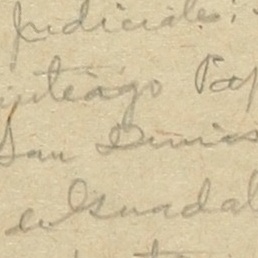 Judiciales:
Santiago Pap
San Dimas
de Guadal